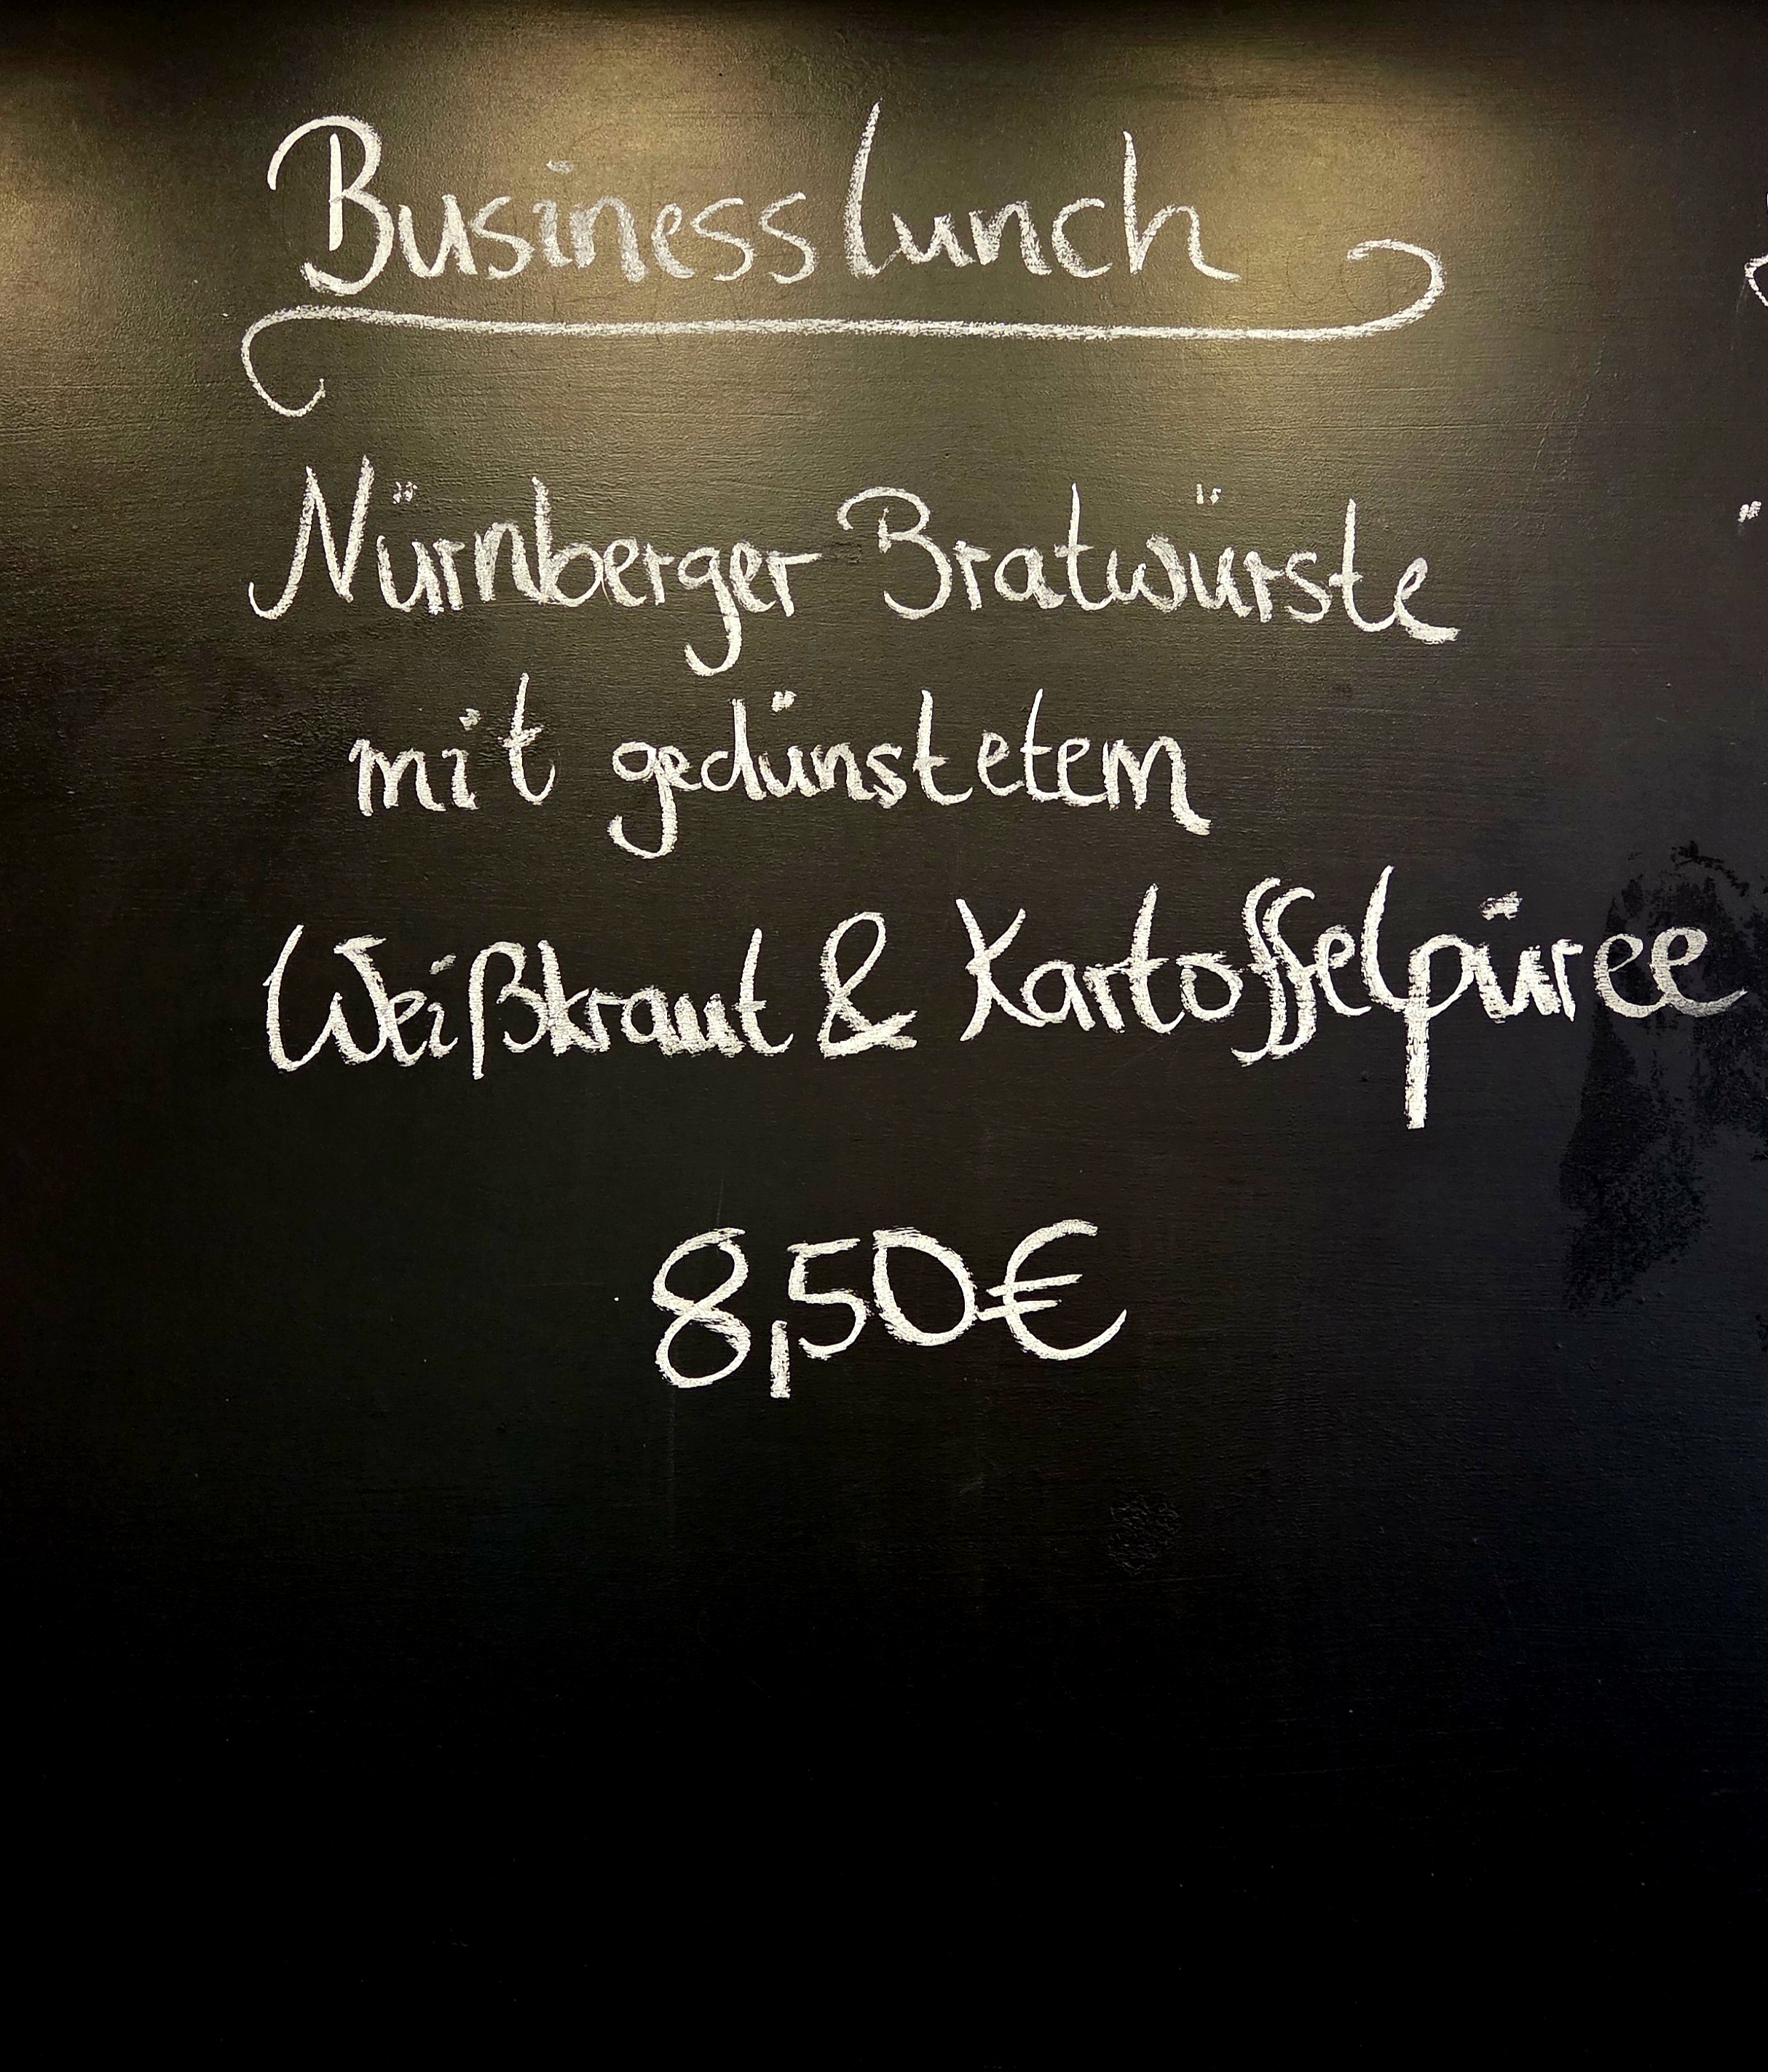 Businesslunch
Nürnberger Bratwürste
mit gedünstetem
Weißkraut & Kartoffelpüree
8,50€